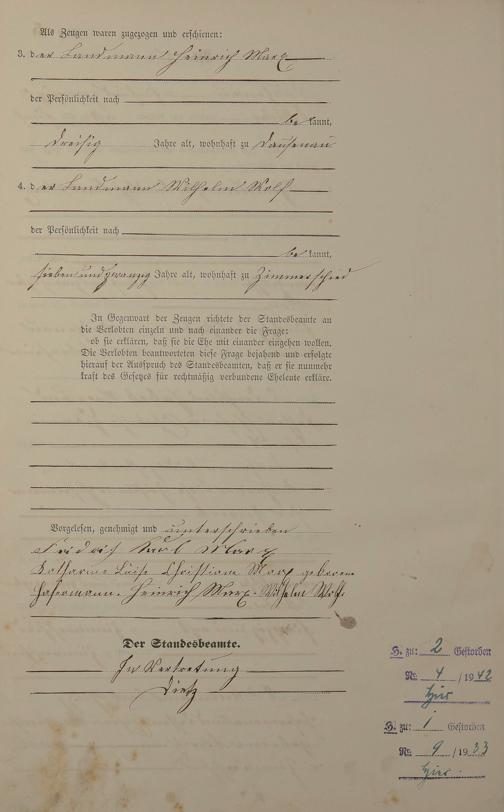 Als Zeugen waren zugezogen und erschienen:
3. der Landmann Heinrich Marx
der Persönlichkeit nach
bekannt,
dreißig Jahre alt, wohnhaft zu Dausenau
4. der Landmann Wilhelm Wolf
der Persönlichkeit nach
bekannt,
siebenundzwanzig Jahre alt, wohnhaft zu Zimmerschied
In Gegenwart der Zeugen richtete der Standesbeamte an
die Verlobten einzeln und nach einander die Frage:
ob sie erklären, daß sie die Ehe mit einander eingehen wollen.
Die Verlobten beantworteten diese Frage bejahend und erfolgte
hierauf der Ausspruch des Standesbeamten, daß er sie nunmehr
kraft des Gesetzes für rechtmäßig verbundene Eheleute erkläre.
Vorgelesen, genehmigt und unterschrieben
Karl Marx
Katharine Luise Christiane Marx geborene
Hasermann. Heinrich Marx. Wilhelm Wolf.
Der Standesbeamte.
In Vertretung
Dietz
H. zu: 2 Gestorben
No 4 / 1942
hier
H. zu: 1 Gestorben
No 9 / 1933
hier